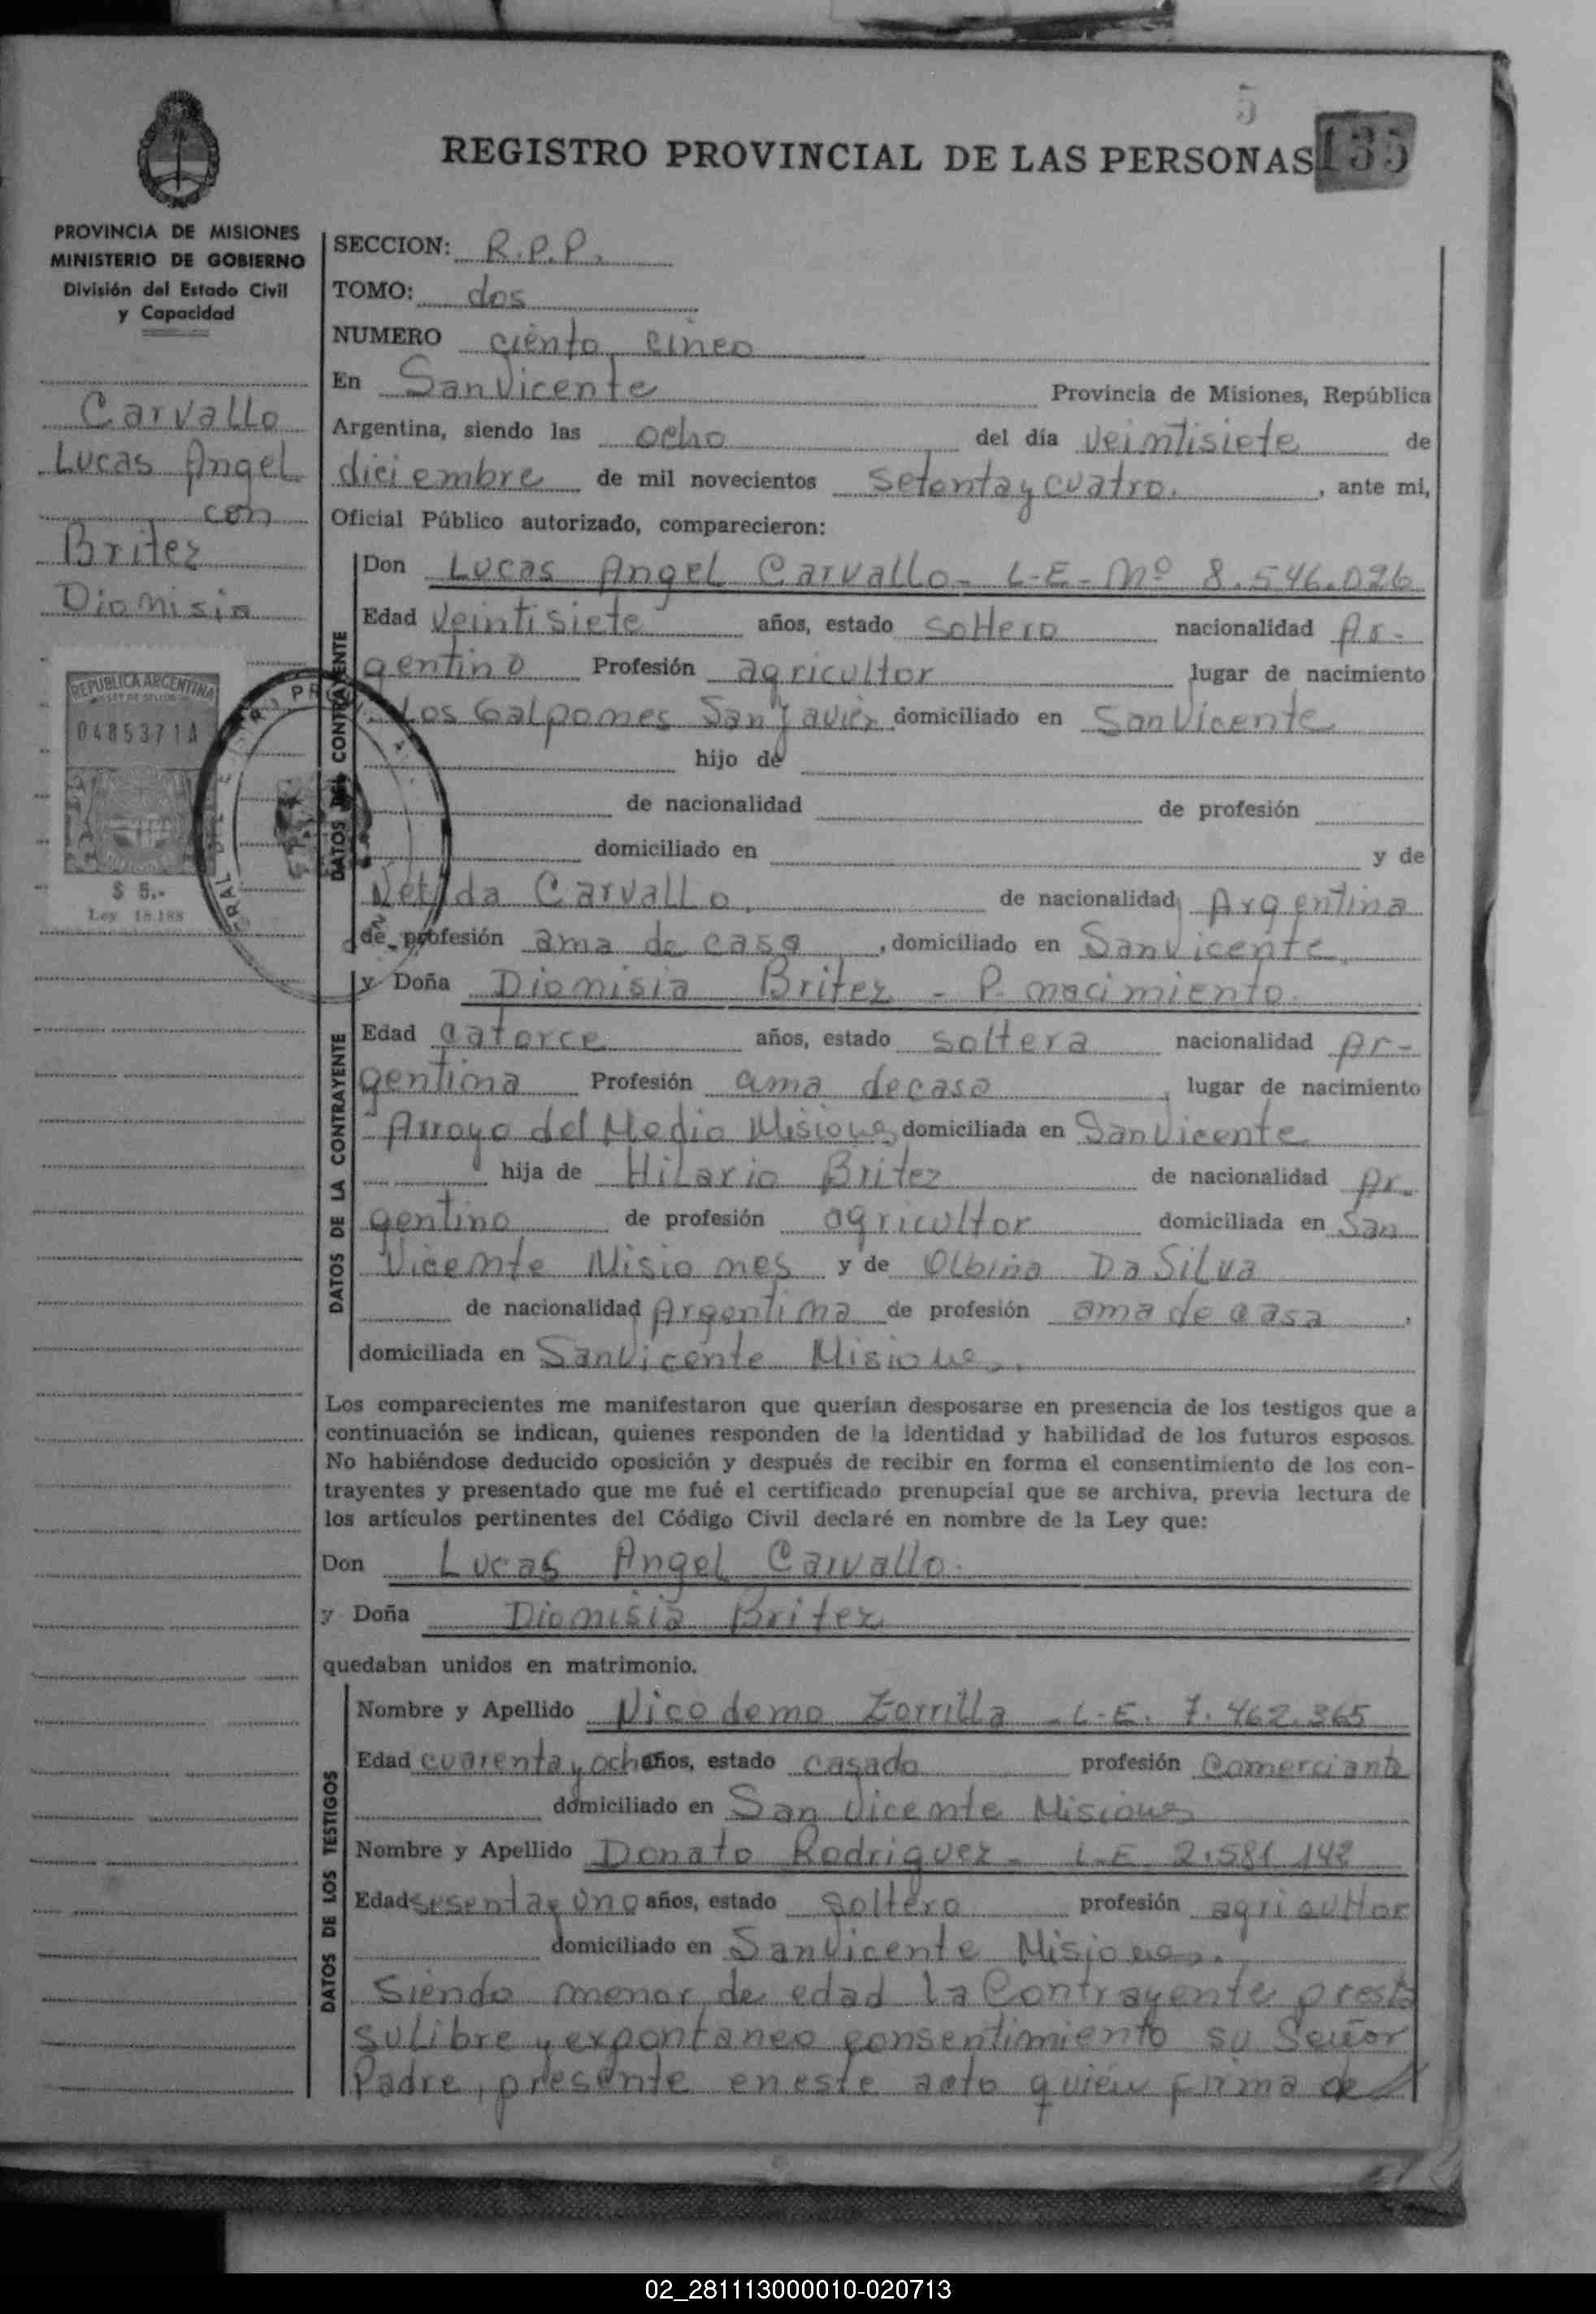 5
REGISTRO PROVINCIAL DE LAS PERSONAS 135
PROVINCIA DE MISIONES
MINISTERIO DE GOBIERNO
División del Estado Civil
y Capacidad
Carvallo
Lucas Angel
con
Britez
Dionisia
REPUBLICA ARGENTINA
LEY DE SELLOS
0485371A
$ 5.-
Ley 18.188
SECCION: R.P.P.
TOMO: dos
NUMERO ciento cinco
En San Vicente Provincia de Misiones, República
Argentina, siendo las ocho del día veintisiete de
diciembre de mil novecientos setenta y cuatro. , ante mi,
Oficial Público autorizado, comparecieron:
DATOS DEL CONTRAYENTE
Don Lucas Angel Carvallo - L-E- Nº 8.546.026
Edad veintisiete años, estado soltero nacionalidad Ar-
gentino Profesión agricultor lugar de nacimiento
Los Galpones San Javier domiciliado en San Vicente
hijo de
de nacionalidad de profesión
domiciliado en y de
Nelida Carvallo, de nacionalidad Argentina
de profesión ama de casa , domiciliado en San Vicente.
DATOS DE LA CONTRAYENTE
y Doña Dionisia Britez - P. nacimiento.
Edad catorce años, estado soltera nacionalidad Ar-
gentina Profesión ama de casa , lugar de nacimiento
Arroyo del Medio Misiones domiciliada en San Vicente
hija de Hilario Britez de nacionalidad Ar-
gentino de profesión agricultor domiciliada en San
Vicente Misiones y de Olbina Da Silva
de nacionalidad Argentina de profesión ama de casa ,
domiciliada en San Vicente Misiones.
Los comparecientes me manifestaron que querían desposarse en presencia de los testigos que a
continuación se indican, quienes responden de la identidad y habilidad de los futuros esposos.
No habiéndose deducido oposición y después de recibir en forma el consentimiento de los con-
trayentes y presentado que me fué el certificado prenupcial que se archiva, previa lectura de
los artículos pertinentes del Código Civil declaré en nombre de la Ley que:
Don Lucas Angel Carvallo.
y Doña Dionisia Britez
quedaban unidos en matrimonio.
DATOS DE LOS TESTIGOS
Nombre y Apellido Nicodemo Zorrilla - L-E. 7.462.365
Edad cuarenta y ocho años, estado casado profesión Comerciante
domiciliado en San Vicente Misiones
Nombre y Apellido Donato Rodriguez - L-E 2.581.142
Edad sesenta y uno años, estado soltero profesión agricultor
domiciliado en San Vicente Misiones.
Siendo menor de edad la Contrayente presta
su libre y expontaneo consentimiento su Señor
Padre, presente en este acto quien firma de
02_281113000010-020713